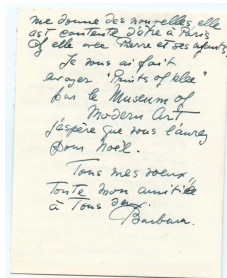 me donne des nouvelles, elle
est contente d'être à Paris
elle avec Pierre et ses
Je vous ai fait
envoyer "Prints of Klee"
par le Museum of
Modern Art
j'espère que vous l'aurez
pour Noël.
Tous mes voeux,
Toute mon amitiée
à Tous deux.
Barbara.